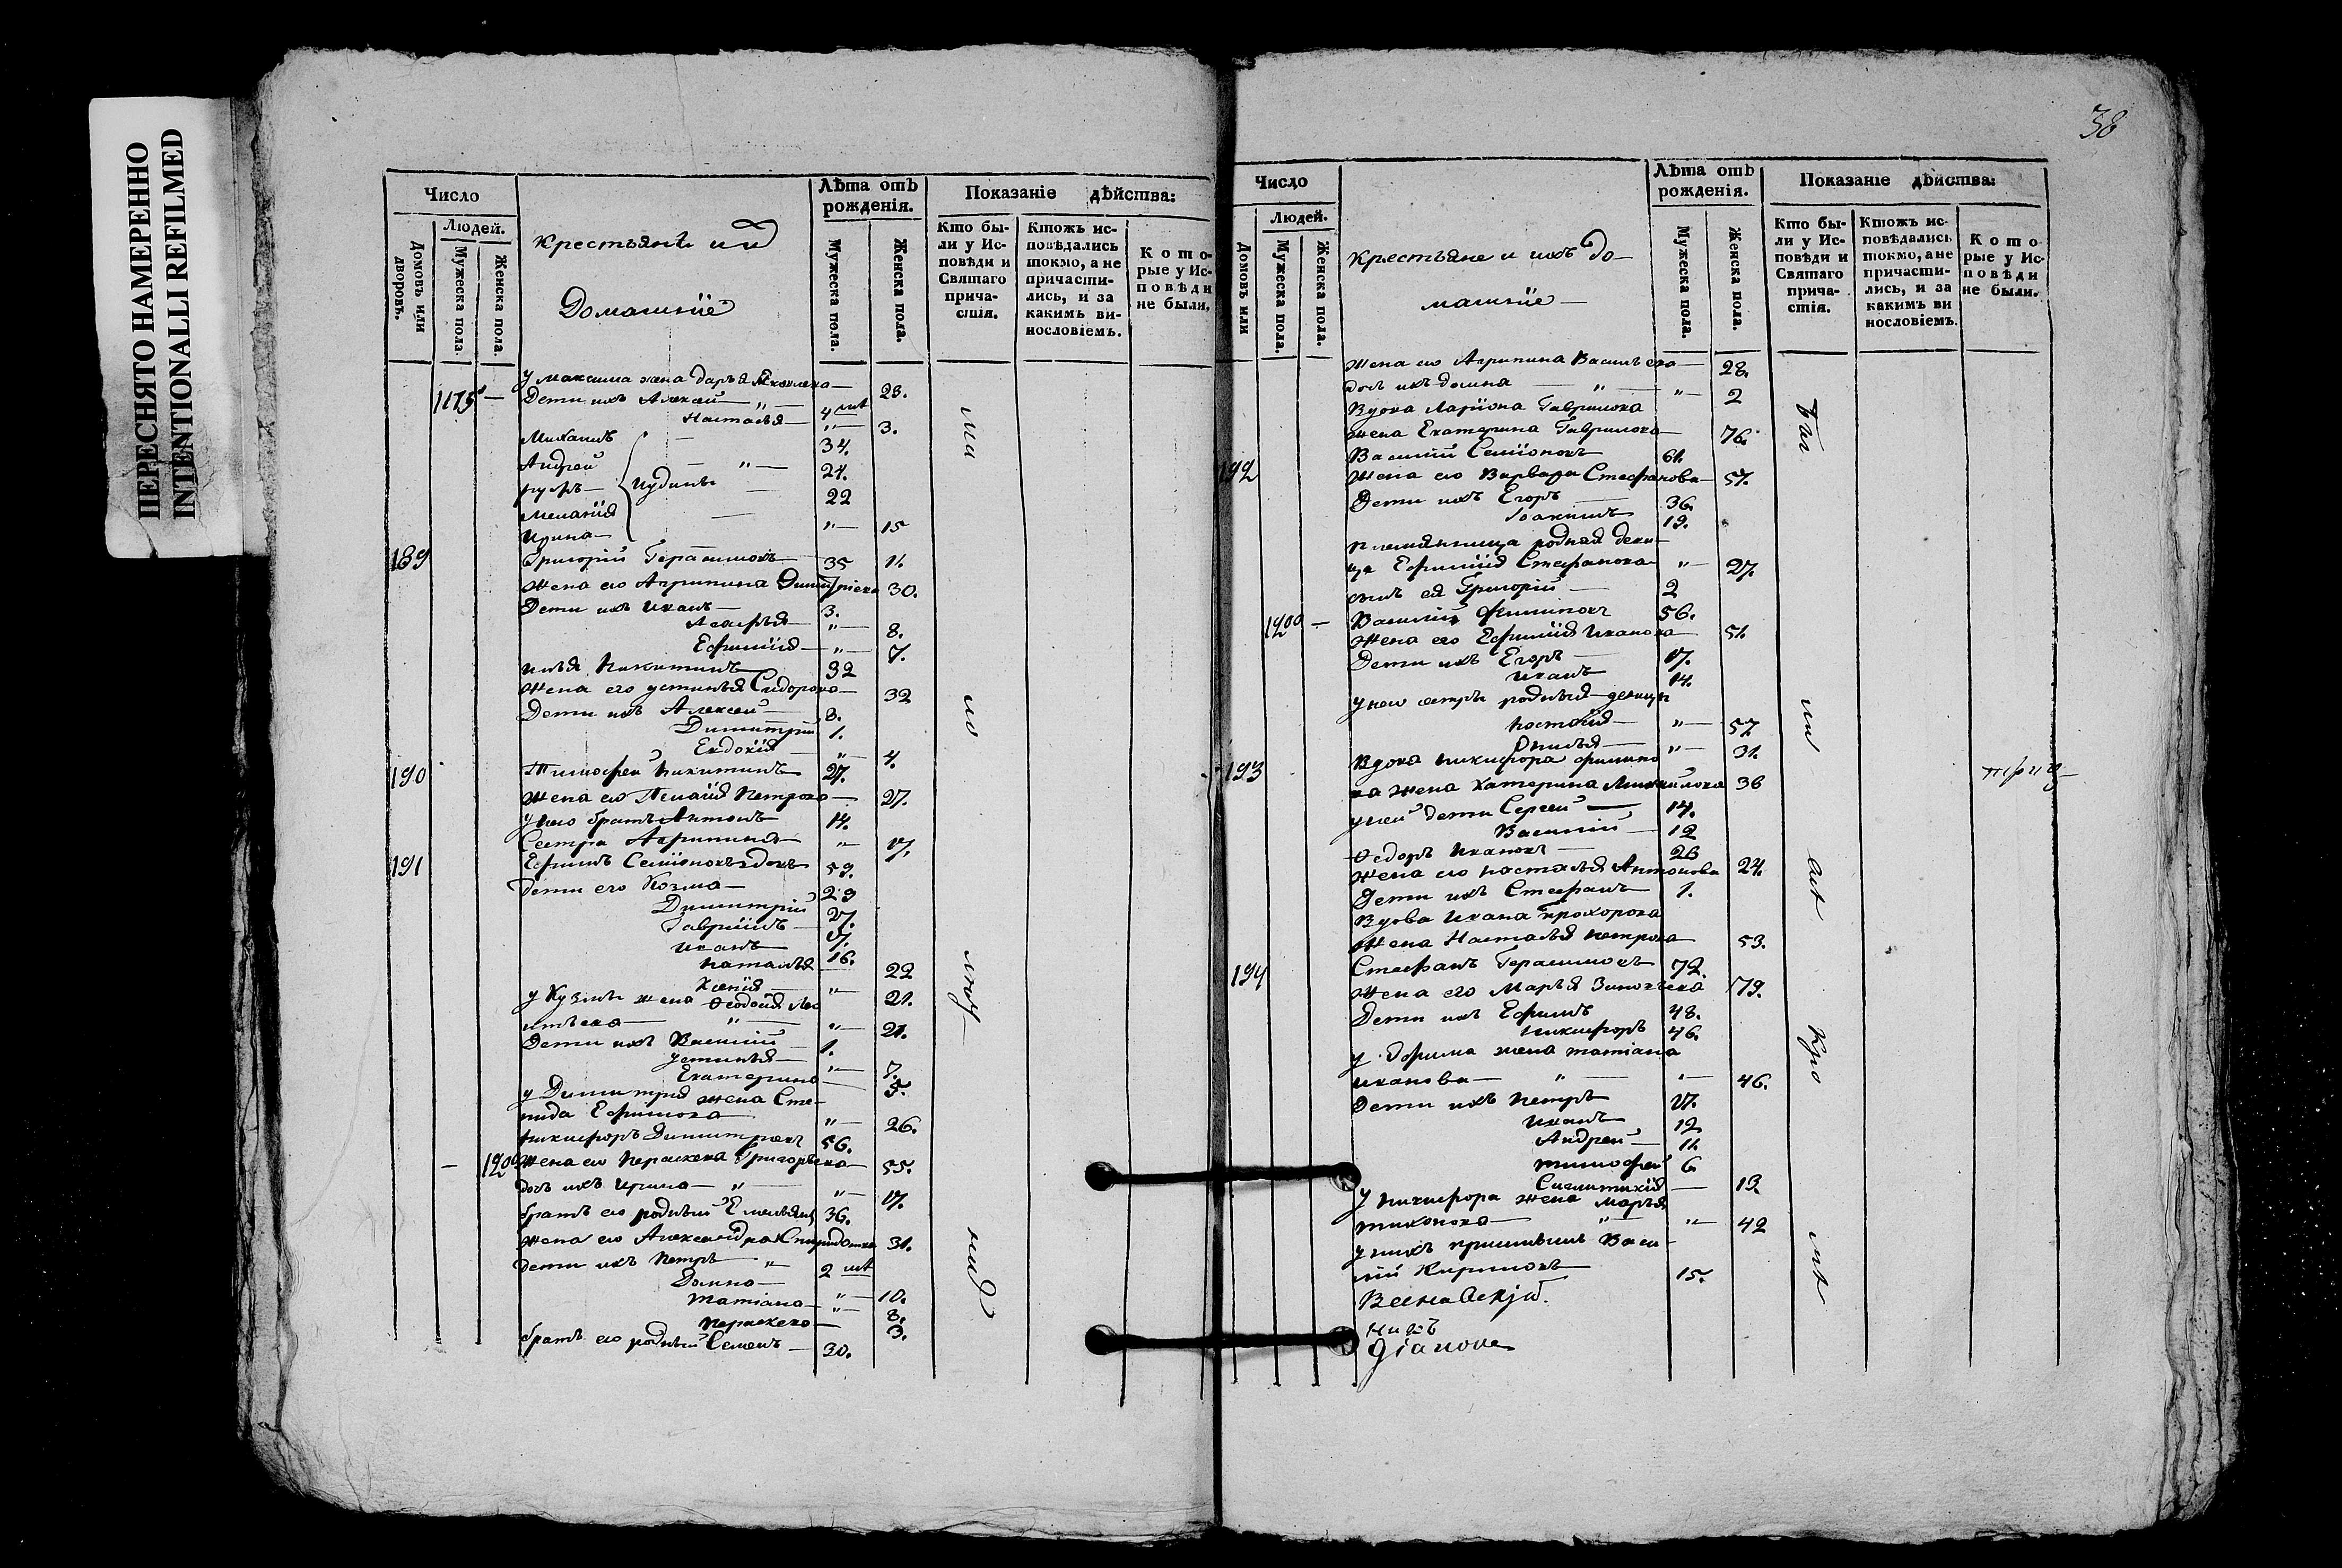 ПЕРЕСНЯТО НАМЕРЕННО
INTENTIONALLI REFILMED
Число
Людей.
Домовъ или дворовъ.
Мужеска пола
Женска пола.
Крестьянѣ и
Домашніе
Лѣта отъ рожденія.
Мужеска пола.
Женска пола.
Показаніе дѣйства:
Кто бы-
ли у Ис-
повѣди и
Святаго
прича-
стія.
Ктожъ ис-
повѣдались
токмо, а не
причасти-
лись, и за
какимъ ви-
нословіемъ.
Кото-
рые у Ис-
повѣди
не были.
у Максима жена Дарья 23.
1175 — Дети ихъ Алексей — " — 4
Настасья — " — 3.
Михаилъ — 34.
Андрей — " — 24.
22
Меланія — " — 15
Ирина — 11.
189 Григорій Герасимовъ — 35
Жена его Агрипина Димитріева 30.
Дети ихъ Иванъ — 3.
" — 8.
Ефимія — " — 7.
Илья Никитинъ 32
Жена его Устинья Сидорова — 32
Дети ихъ Алексей — 8.
Димитрій 1.
Евдокія — " — 4.
190 Тимофей Никитинъ 27.
Жена его Пелагія Петрова — 27.
у него братъ Антонъ 14.
Сестра Агрипина " 17.
191 Ефимъ Семіоновъ вдовъ 59.
Дети его Козма — 29
Димитрій 27.
Гавріилъ — 17.
Иванъ 16.
Наталья 22
Ксенія — " 21.
у Кузмы жена Феодосія Ле
нтьева — " — " — 21.
Дети ихъ Василій — 1.
Устинья — " — 7.
Екатерина — 5.
у Димитрія жена Сте-
пида Ефимова " — 26.
Никифоръ Димитріевъ 56.
— 1200 Жена его Параскева Григорьева — 55.
Дочь ихъ Ирина — " — " — 17.
братъ его родный Емельянъ 36.
Жена его Александра Спиридонова 31.
Дети ихъ Петръ — " 2
Домна — " — 10.
Татіана — " — 8.
Параскева — 3.
братъ его родный Семенъ — 30.
38
Число
Людей.
Домовъ или
Мужеска пола.
Женска пола.
Крестьяне и ихъ до-
машніе —
Лѣта отъ рожденія.
Мужеска пола.
Женска пола.
Показаніе дѣйства:
Кто бы-
ли у Ис-
повѣди и
Святаго
прича-
стія.
Ктожъ ис-
повѣдались
токмо, а не
причасти-
лись, и за
какимъ ви
нословіемъ.
Кото-
рые у Ис-
повѣди
не были.
Жена его Агрипина Васильева — 28.
дочь ихъ Домна — " — " — 2
Вдова Ларіона Гаврилова
жена Екатерина Гаврилова — 76.
192 Василій Семіоновъ 61.
Жена его Варвара Стефанова — 57.
Дети ихъ Егоръ — 36.
Іоакимъ 19.
племянница родная деви-
ца Ефимія Стефанова " — 27.
сынъ ея Григорій — 2
1200 — Василій Филиповъ 56.
Жена его Ефимія Иванова 51.
Дети ихъ Егоръ — 17.
Иванъ 14.
у нея сестры родныя девицы
" — 57.
" — 31.
193 Вдова Никифора Филипо
ва жена Катерина Михайлова 36
у ней дети Сергей — 14.
Василій — 12
Федоръ Ивановъ — 23
Жена его Настасья Антонова 24.
Дети ихъ Стефанъ 1.
Вдова Ивана Прохорова
Жена Настасья Петрова 53.
194 Стефанъ Герасимовъ 72.
Жена его Марья Зиновьева 79.
Дети ихъ Ефимъ 48.
Никифоръ 46.
у Ефима жена Татіана
Иванова — " — " — 46.
Дети ихъ Петръ 17.
Иванъ 12
Андрей — 11.
Тимофей 6
Сиглитикія — 13.
у Никифора жена Марья
Тихонова — " — " — 42
у нихъ пріимышъ Васи-
лій Кириловъ 15.